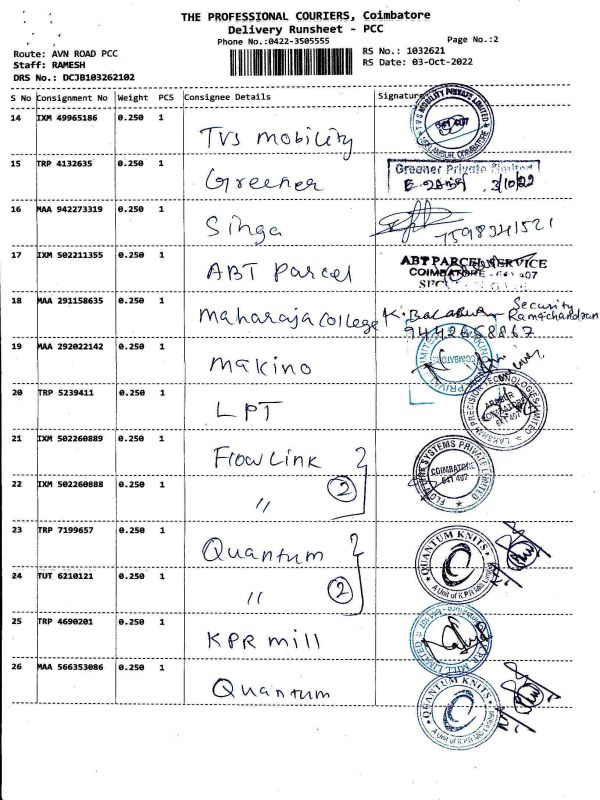 THE PROFESSIONAL COURIERS, Coimbatore
Delivery Runsheet - PCC
Phone No.:0422-3505555
Page No.:2
Route: AVN ROAD PCC
RS No.: 1032621
Staff: RAMESH
RS Date: 03-Oct-2022
DRS No.: DCJB103262102
S No Consignment No Weight PCS Consignee Details Signature
14 IXM 49965186 0.250 1 TVS mobility
15 TRP 4132635 0.250 1 Greener Greener Private Limited 3/10/22
16 MAA 942273319 0.250 1 Singa
17 IXM 502211355 0.250 1 ABT Parcel ABT PARCEL SERVICE
COIMBATORE
18 MAA 291158635 0.250 1 Maharaja College Security
Ramachandran
19 MAA 292022142 0.250 1 Makino COIMBATORE
20 TRP 5239411 0.250 1 LPT LAKSHMI PRECISION TECHNOLOGIES LIMITED
21 IXM 502260889 0.250 1 FlowLink SYSTEMS PRIVATE LIMITED
COIMBATORE
641 407
22 IXM 502260888 0.250 1 〃 2
23 TRP 7199657 0.250 1 Quantum QUANTUM KNITS
A Unit of K.P.R Mill Limited
24 TUT 6210121 0.250 1 〃 2
25 TRP 4690201 0.250 1 KPR mill
26 MAA 566353086 0.250 1 Quantum QUANTUM KNITS
A Unit of K.P.R Mill Limited